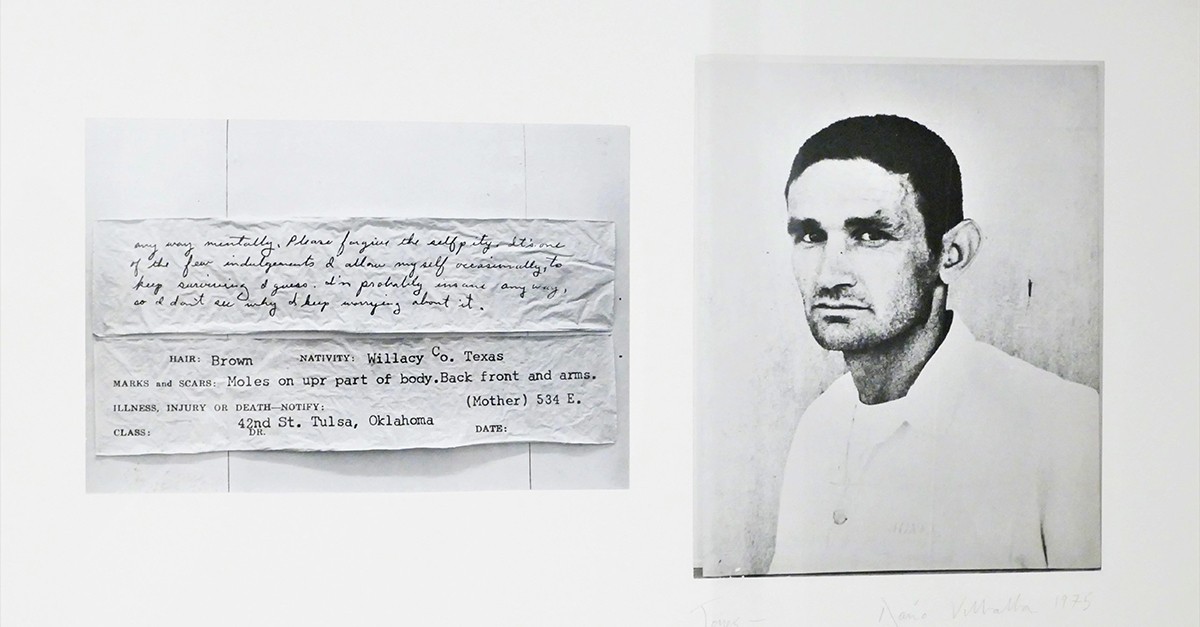 any way mentally. Please forgive the selfpity. It's one
of the few indulgements I allow myself occasionally, to
keep surviving I guess. I'm probably insane any way,
so I don't see why I keep worrying about it.
HAIR: Brown NATIVITY: Willacy Co. Texas
MARKS and SCARS: Moles on upr part of body.Back front and arms.
ILLNESS, INJURY OR DEATH—NOTIFY: (Mother) 534 E.
42nd St. Tulsa, Oklahoma
CLASS: DR. DATE:
Darío Villalba 1975